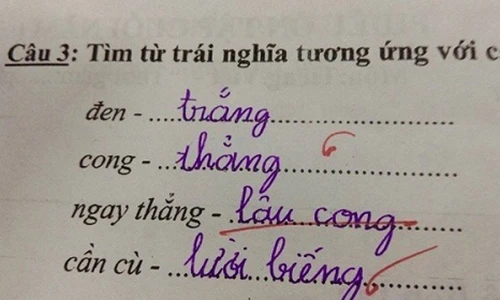 Câu 3: Tìm từ trái nghĩa tương ứng với c
đen - ....trắng...............................
cong - ...thẳng..............................
ngay thẳng - .lâu cong..............
cần cù - ...lười biếng...............